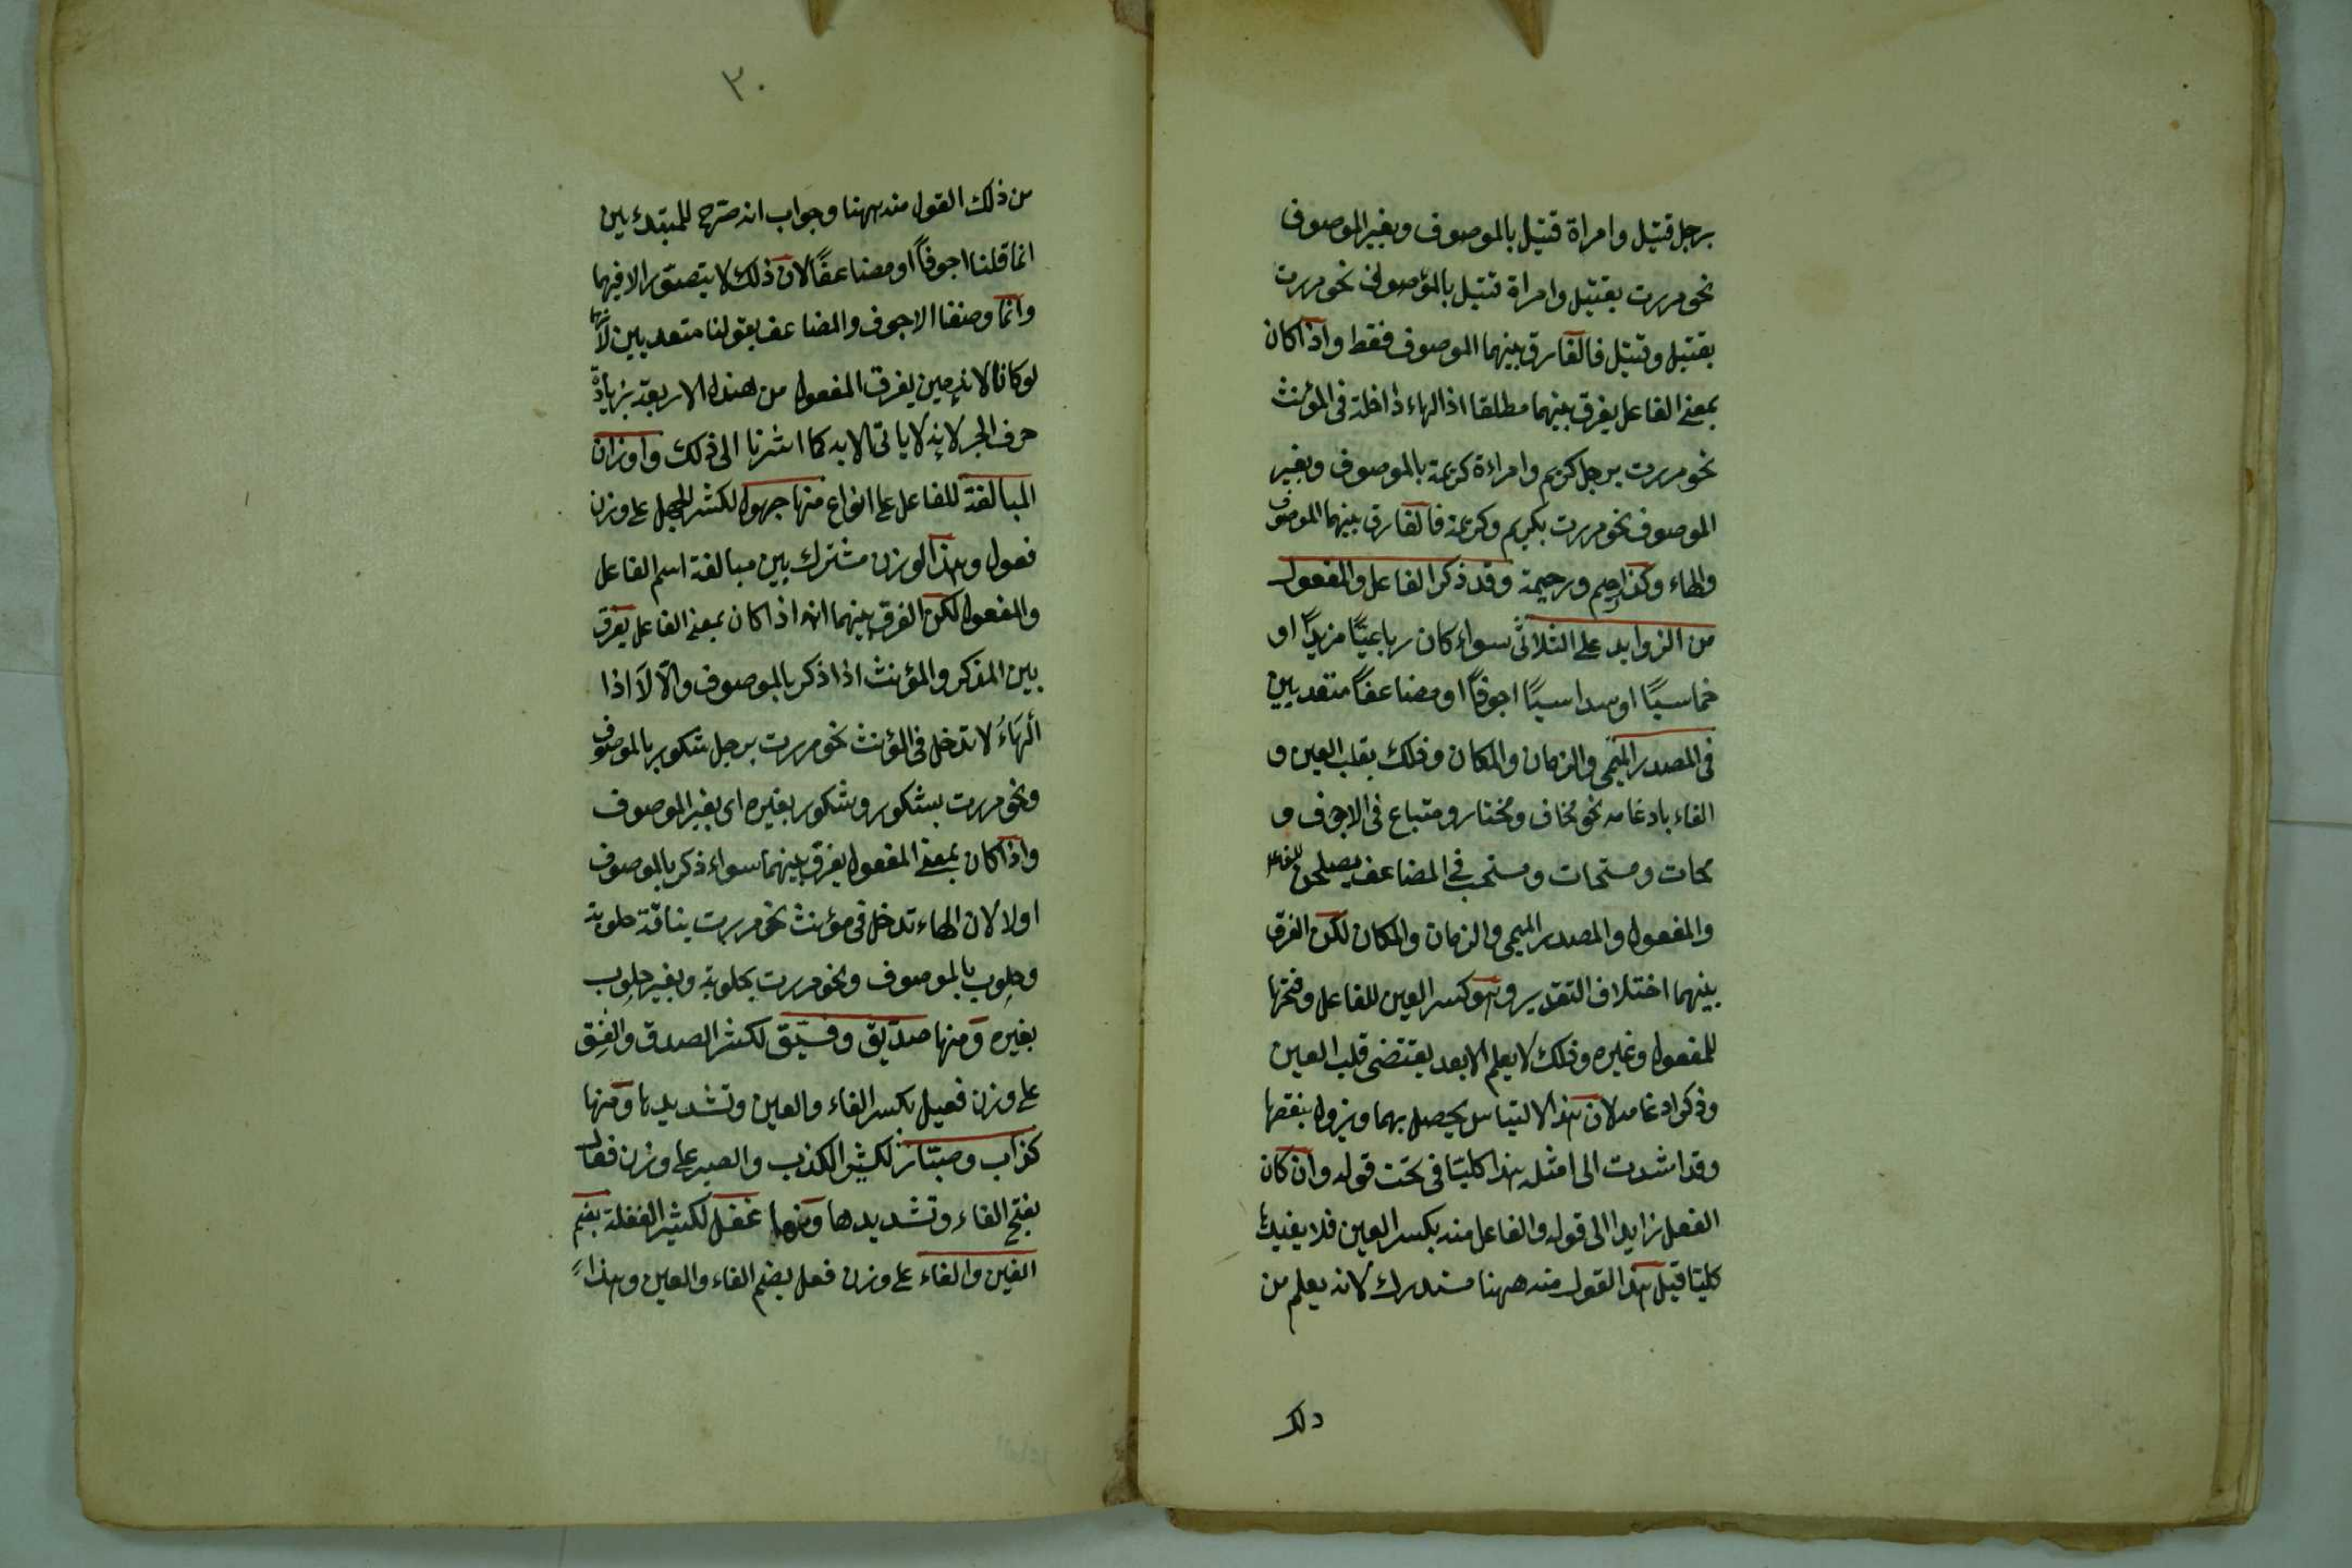 برجل قتيل وامراة قتيل بالموصوف وبغير الموصوف
نحو مررت بقتيل وامراة قتيل بالموصوف نحو مررت
بقتيل وقتيل فالفارق بينهما الموصوف فقط واذا كان
بمعنى الفاعل يفرق بينهما مطلقا اذ الهاء داخلة فى المؤنث
نحو مررت برجل كريم وامراءة كريمة بالموصوف وبغير
الموصوف نحو مررت بكريم وكريمة فالفارق بينهما الموصوف
والهاء وكذا رحيم ورحيمة وقد ذكر الفاعل والمفعول
من الزوايد على الثلاثى سواء كان رباعيًّا مزيدًا او
خماسيًّا او سداسيًّا اجوفًا او مضاعفًا متعديين
فى المصدر الميمى والزمان والمكان وذلك بقلب العين و
الفاء بادغامه نحو مخاف ومختار ومتباع فى الاجوف و
محات ومستحات ومستحب فى المضاعف يصلحن للفاعل
والمفعول والمصدر الميمى والزمان والمكان لكن الفرق
بينهما اختلاف التقدير وهو كسر العين للفاعل وفتحها
للمفعول وغيره وذلك لا يعلم الا بعد يقتضى قلب العين
وذكر ادغامه لان هذا الالتباس يحصل بهما ويزول بنقضها
وقد اشدت الى امثله هذا كليتا فى تحت قوله وان كان
الفعل زايدا الى قوله والفاعل منه بكسر العين فلا يفيدك
كليتا قيل هذا القول منه ههنا مستدرك لانه يعلم من
ذلك
٣٠
من ذلك القول منه ههنا وجواب انه صرح للمبتدئين
انما قلنا اجوفًا او مضاعفًا لان ذلك لا يتصور الا فيهما
وانما وصفنا الاجوف والمضاعف بقولنا متعديين لانهما
لو كانا لازمين يفرق المفعول من هذه الاربعة بزيادة
حرف الجر لانه لا ياتى الا به كما اشرنا الى ذلك واوزان
المبالغة للفاعل على انواع منها جهول لكثير الجهل على وزن
فعول وهذا الوزن مشترك بين مبالغة اسم الفاعل
والمفعول لكن الفرق بينهما انه اذا كان بمعنى الفاعل يفرق
بين المذكر والمؤنث اذا ذكر بالموصوف والّا لَا اذا
الهَاءُ لا تدخل فى المؤنث نحو مررت برجل شكور بالموصوف
ونحو مررت بشكور وشكور بغيره اى بغير الموصوف
واذا كان بمعنى المفعول يفرق بينهما سواء ذكر بالموصوف
اولا لان الهاء تدخل فى مؤنث نحو مررت بناقة حلوبة
وحلوب بالموصوف ونحو مررت بحلوبة وبغير حلوب
بغيره ومنها صدّيق وفسّيق لكثير الصدق والفسق
على وزن فعيل بكسر الفاء والعين وتشديدها ومنها
كذاب وصبّار لكثير الكذب والصبر على وزن فعال
بفتح الفاء وتشديدها ومنها غفل لكثير الغفلة بضم
الغين والفاء على وزن فعل بضم الفاء والعين وهذا